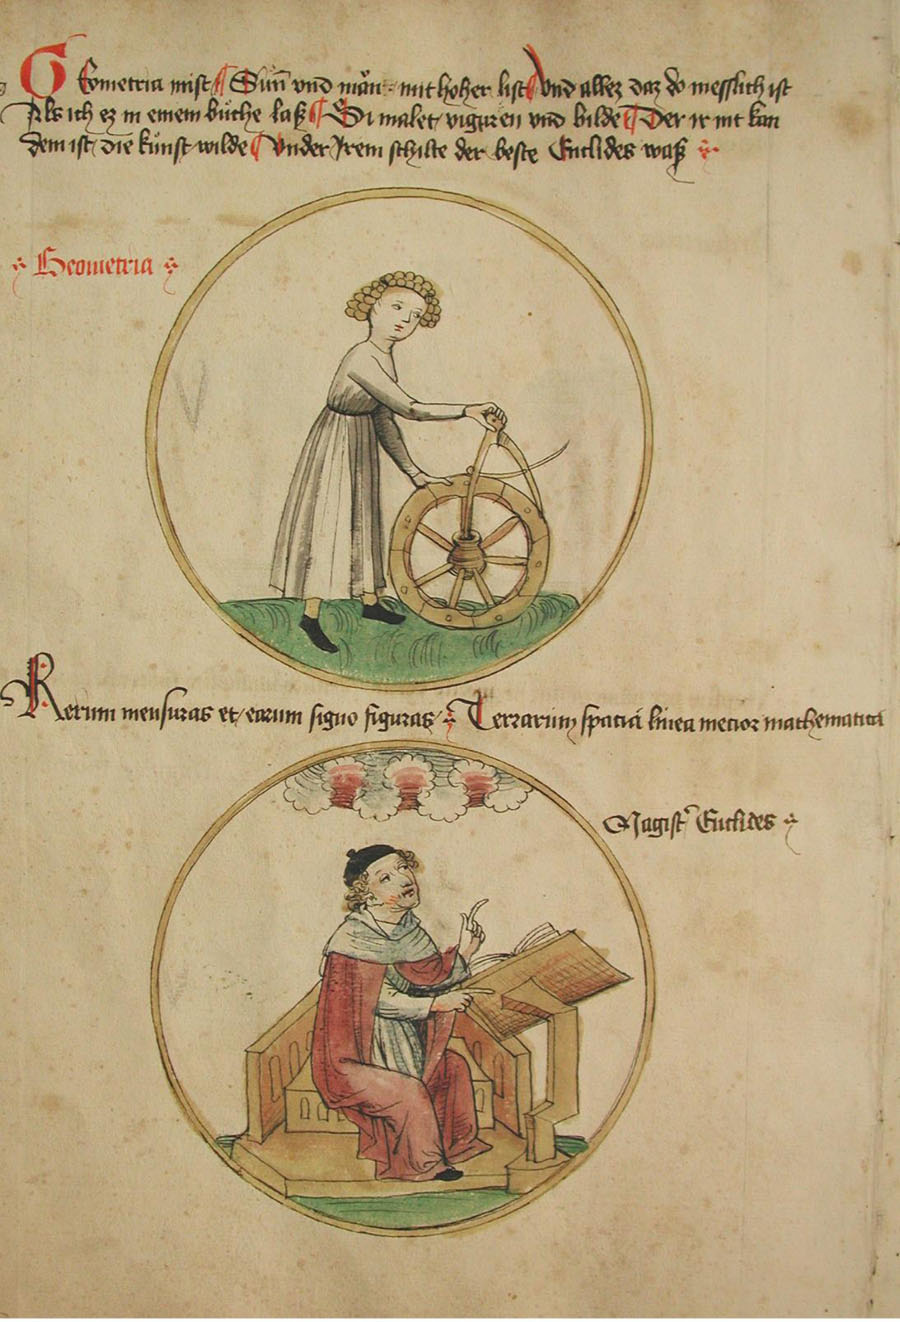 Geometria mist Sun̄ vnd mān mit hoher list Vnd allez daz do messlich ist
Als ich ez in einem bůche laß Si malet viguren vnd bilde Der ir nit kan
dem ist die kunst wilde Vnder Irem schilte der beste Euclides waß
Geometria
Rerum mensuras et earum signo figuras Terrarum spatia linea metior mathematica
Magist̃ Euclides